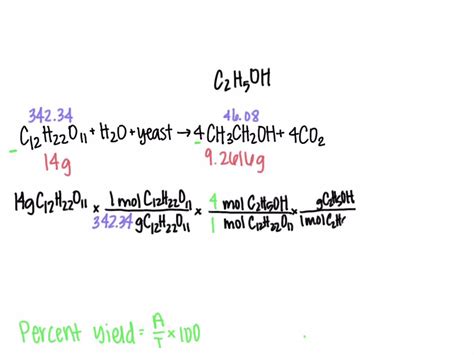 C₂H₅OH
342.34 46.08
C₁₂H₂₂O₁₁ + H₂O + yeast → 4 CH₃CH₂OH + 4CO₂
14g 9.2616g
14g C₁₂H₂₂O₁₁ × 1 mol C₁₂H₂₂O₁₁ / 342.34 g C₁₂H₂₂O₁₁ × 4 mol C₂H₅OH / 1 mol C₁₂H₂₂O₁₁ × g C₂H₅OH / 1 mol C₂H
Percent yield = A/T × 100